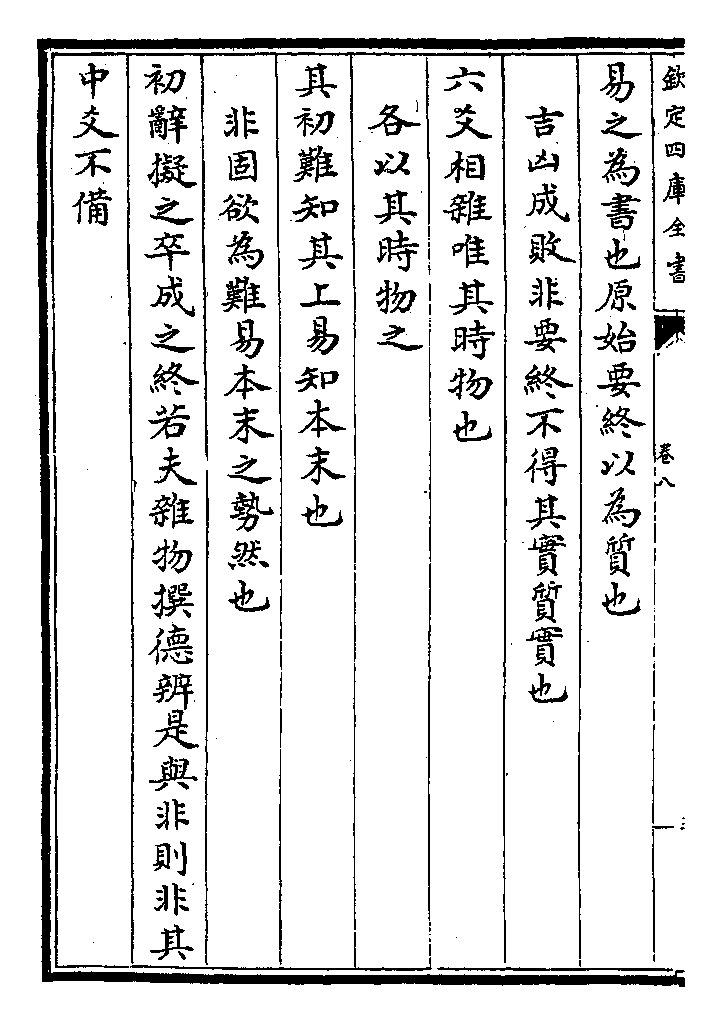 欽定四庫全書
卷八
易之為書也原始要終以為質也
吉凶成敗非要終不得其實質實也
六爻相雜唯其時物也
各以其時物之
其初難知其上易知本末也
非固欲為難易本末之勢然也
初辭擬之卒成之終若夫雜物撰德辨是與非則非其
中爻不備